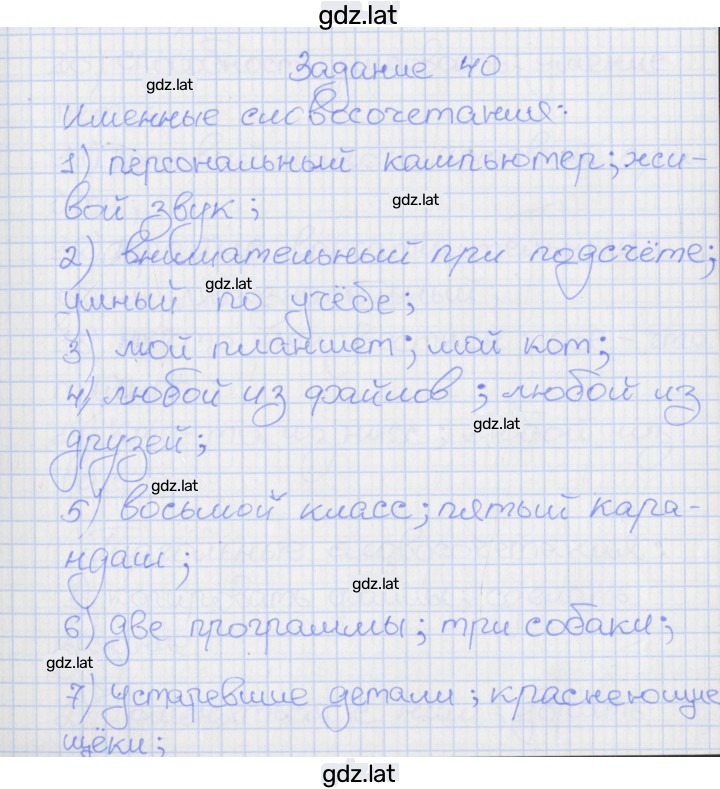 gdz.lat
Задание 40
gdz.lat
Именные словосочетания:
1) персональный компьютер; жи-
gdz.lat
вой звук;
2) внимательный при подсчёте;
gdz.lat
умный по учёбе;
3) мой планшет; мой кот;
4) любой из файлов; любой из
gdz.lat
друзей;
gdz.lat
5) восьмой класс; пятый кара-
ндаш;
gdz.lat
6) две программы; три собаки;
gdz.lat
7) устаревшие детали; краснеющие
щёки;
gdz.lat